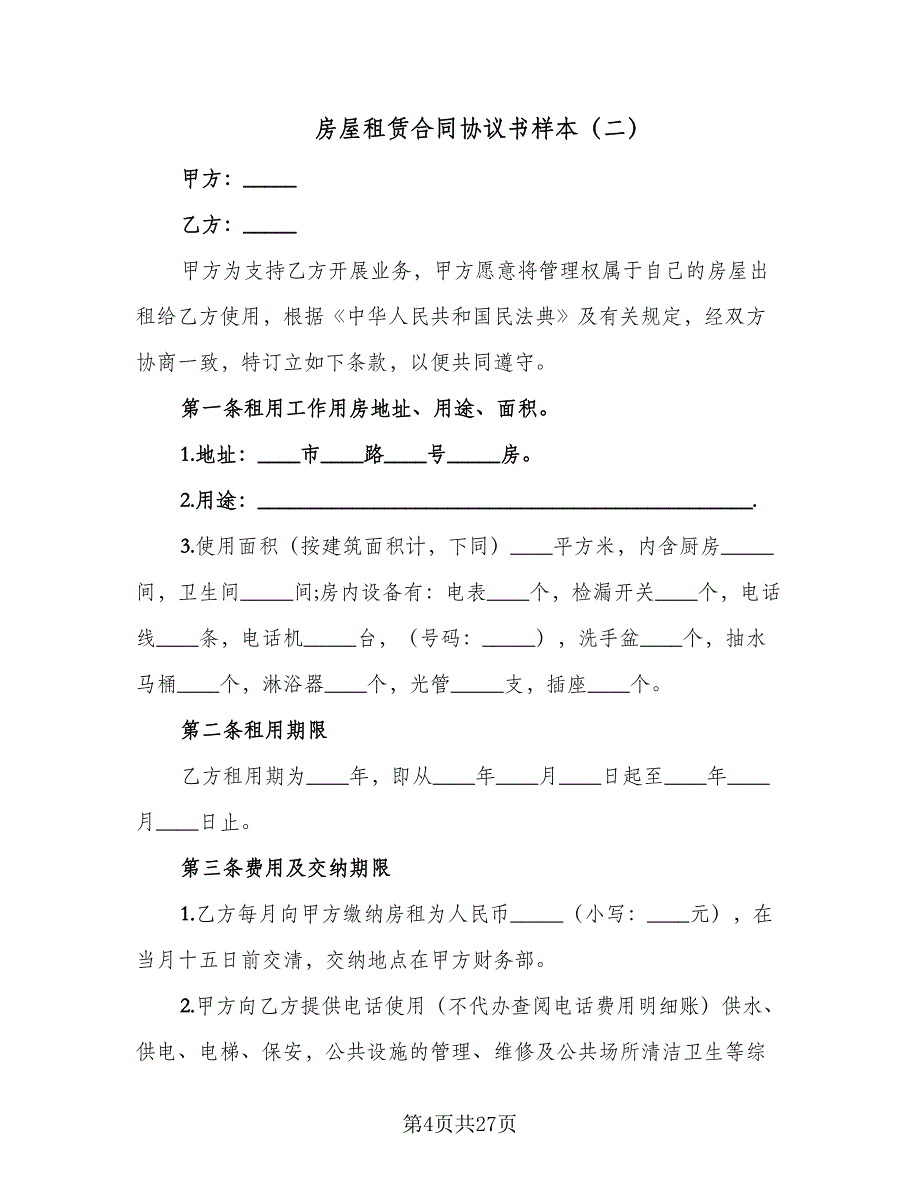 房屋租赁合同协议书样本（二）
甲方：_____
乙方：_____
甲方为支持乙方开展业务，甲方愿意将管理权属于自己的房屋出
租给乙方使用，根据《中华人民共和国民法典》及有关规定，经双方
协商一致，特订立如下条款，以便共同遵守。
第一条租用工作用房地址、用途、面积。
1.地址：____市____路____号_____房。
2.用途：_______________________________________________.
3.使用面积（按建筑面积计，下同）____平方米，内含厨房_____
间，卫生间_____间;房内设备有：电表____个，检漏开关____个，电话
线____条，电话机_____台，（号码：_____），洗手盆____个，抽水
马桶____个，淋浴器____个，光管_____支，插座____个。
第二条租用期限
乙方租用期为____年，即从____年____月____日起至____年____
月____日止。
第三条费用及交纳期限
1.乙方每月向甲方缴纳房租为人民币_____（小写：____元），在
当月十五日前交清，交纳地点在甲方财务部。
2.甲方向乙方提供电话使用（不代办查阅电话费用明细账）供水、
供电、电梯、保安，公共设施的管理、维修及公共场所清洁卫生等综
第4页共27页